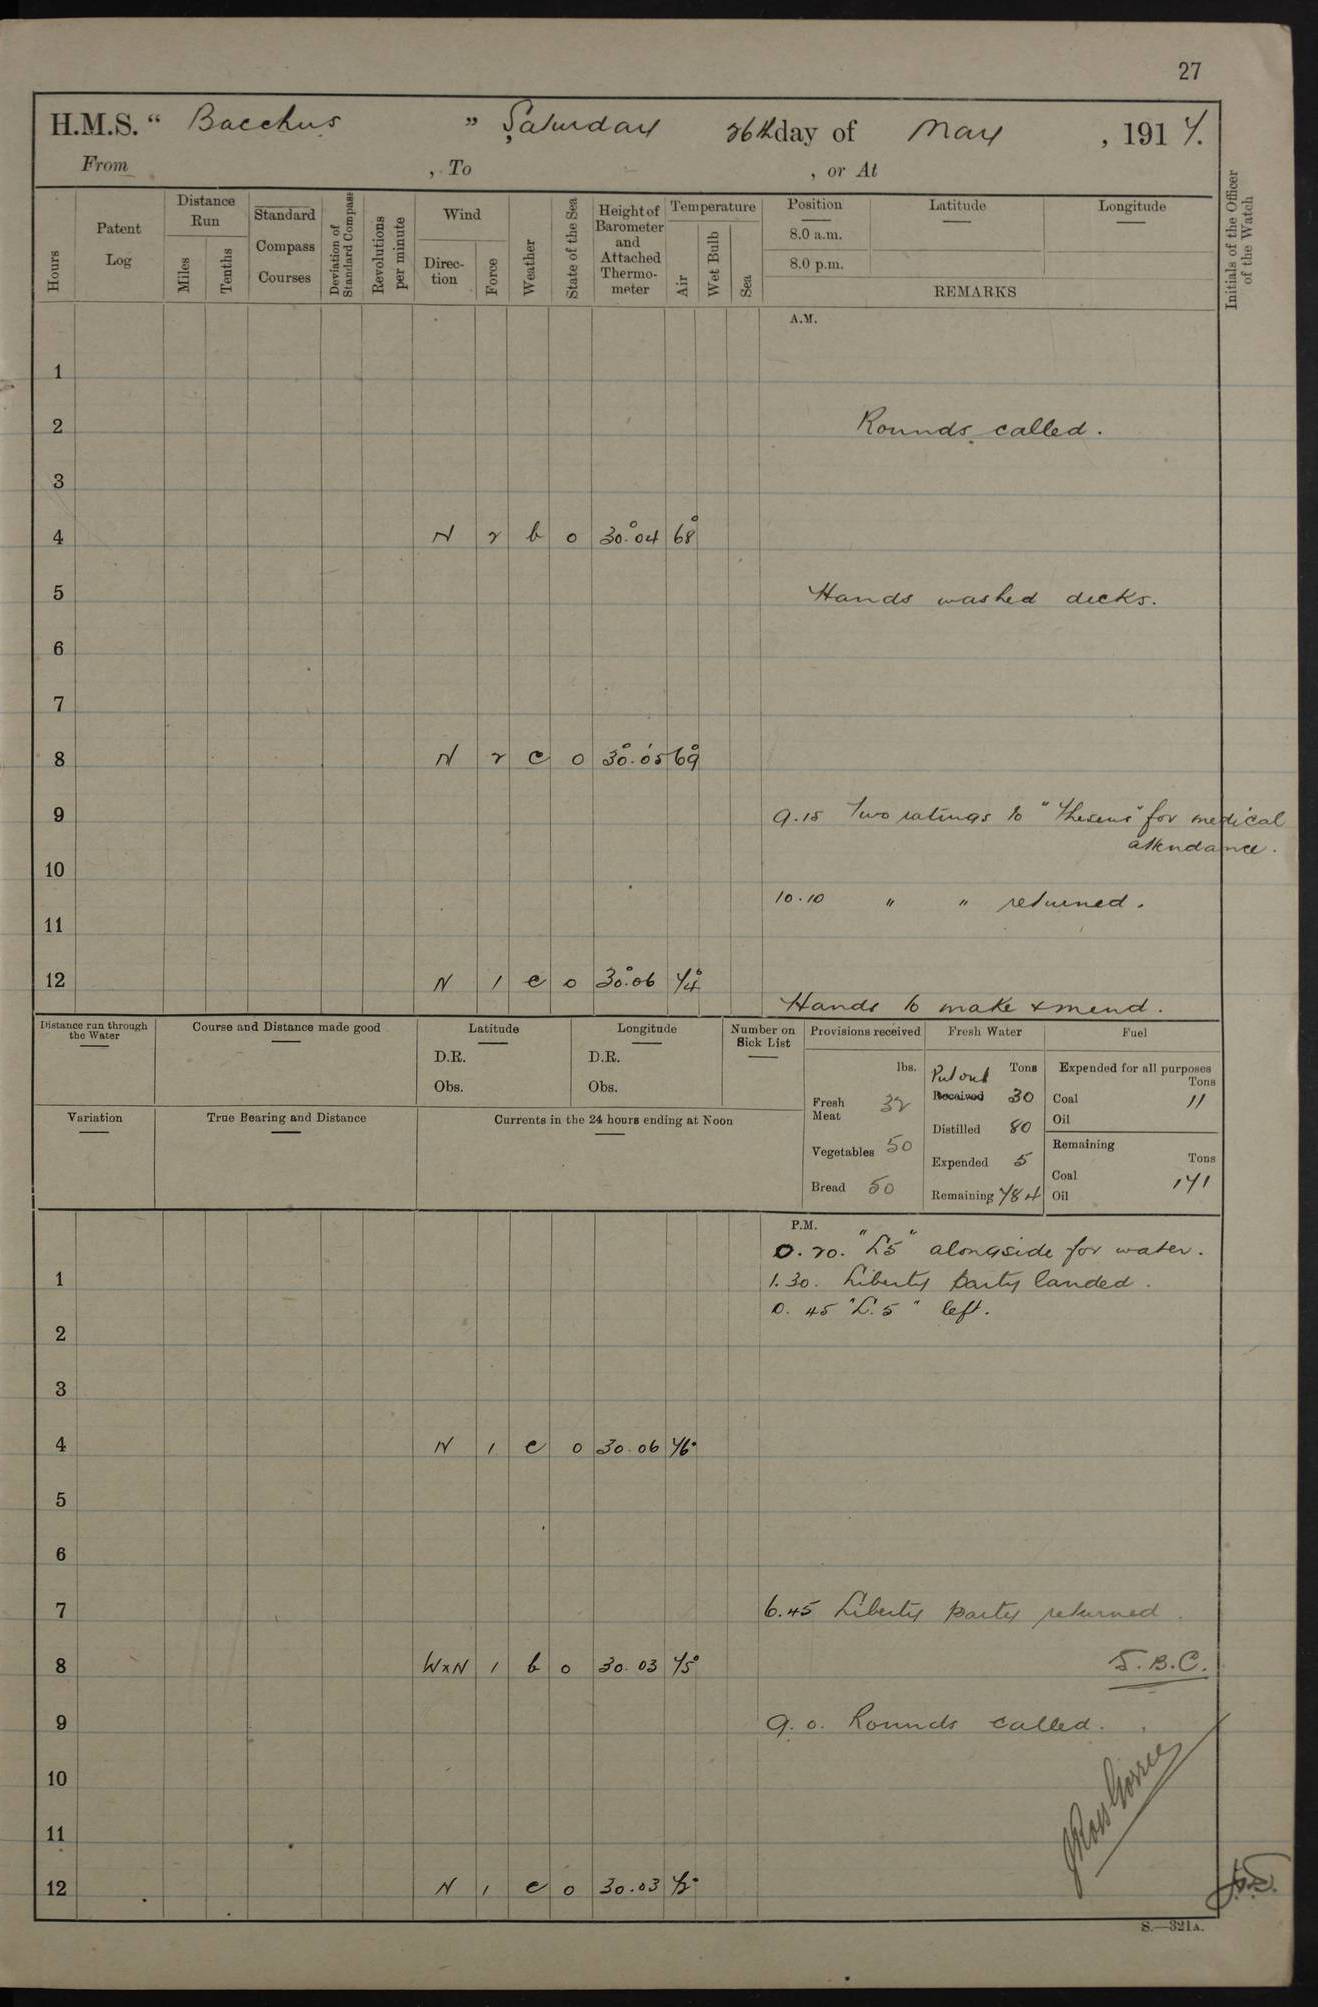 27
H.M.S. " Bacchus " Saturday 26th day of May , 1917.
From , To , or At
Hours
Patent Log
Distance Run
Miles
Tenths
Standard Compass Courses
Deviation of Standard Compass
Revolutions per minute
Wind
Direction
Force
Weather
State of the Sea
Height of Barometer and Attached Thermometer
Temperature
Air
Wet Bulb
Sea
Position
8.0 a.m.
8.0 p.m.
Latitude
Longitude
REMARKS
Initials of the Officer of the Watch
A.M.
1
2 Rounds called.
3
4 N 2 b 0 30.04 68°
5 Hands washed decks.
6
7
8 N 2 c 0 30.05 69
9 9.15 Two ratings to "Theseus" for medical
attendance.
10
10.10 " " returned.
11
12 N 1 c 0 30.06 74°
Hands to make & mend.
Distance run through the Water
Course and Distance made good
Latitude
D.R.
Obs.
Longitude
D.R.
Obs.
Number on Sick List
Provisions received
lbs.
Fresh Meat 32
Vegetables 50
Bread 50
Fresh Water
Tons
Put out
Received 30
Distilled 80
Expended 5
Remaining 784
Fuel
Expended for all purposes
Tons
Coal 11
Oil
Remaining
Tons
Coal 171
Oil
Variation
True Bearing and Distance
Currents in the 24 hours ending at Noon
P.M.
0.20. "L5" alongside for water.
1 1.30. Liberty party landed.
0.45 "L.5" left.
2
3
4 N 1 c 0 30.06 76°
5
6
7 6.45 Liberty party returned.
8 WxN 1 b 0 30.03 75° S.B.C.
9 9.0. Rounds called.
10
11
12 N 1 c 0 30.03 72°
S.—321A.